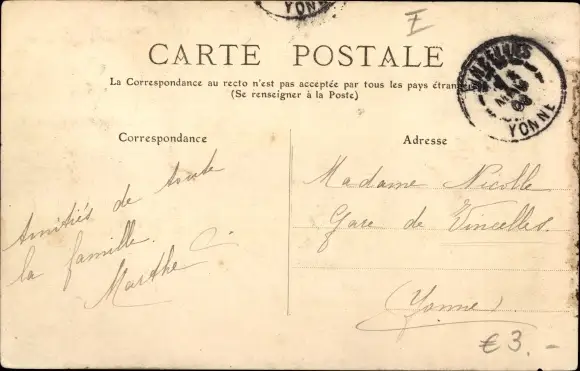 YONNE
E
CARTE POSTALE
La Correspondance au recto n'est pas acceptée par tous les pays étran
(Se renseigner à la Poste)
YONNE
Correspondance
Adresse
Amitiés de toute
la famille.
Marthe C.
Madame Nicolle
Gare de Vincelles.
(Yonne)
€3.-